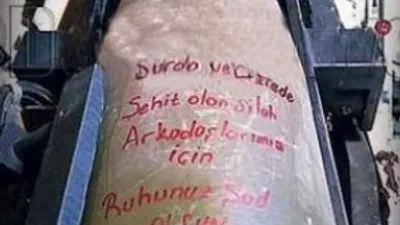 Surda ve Cizrede
Şehit olan Silah
Arkadaşlarımız
için
Ruhunuz Şad
OLSUN